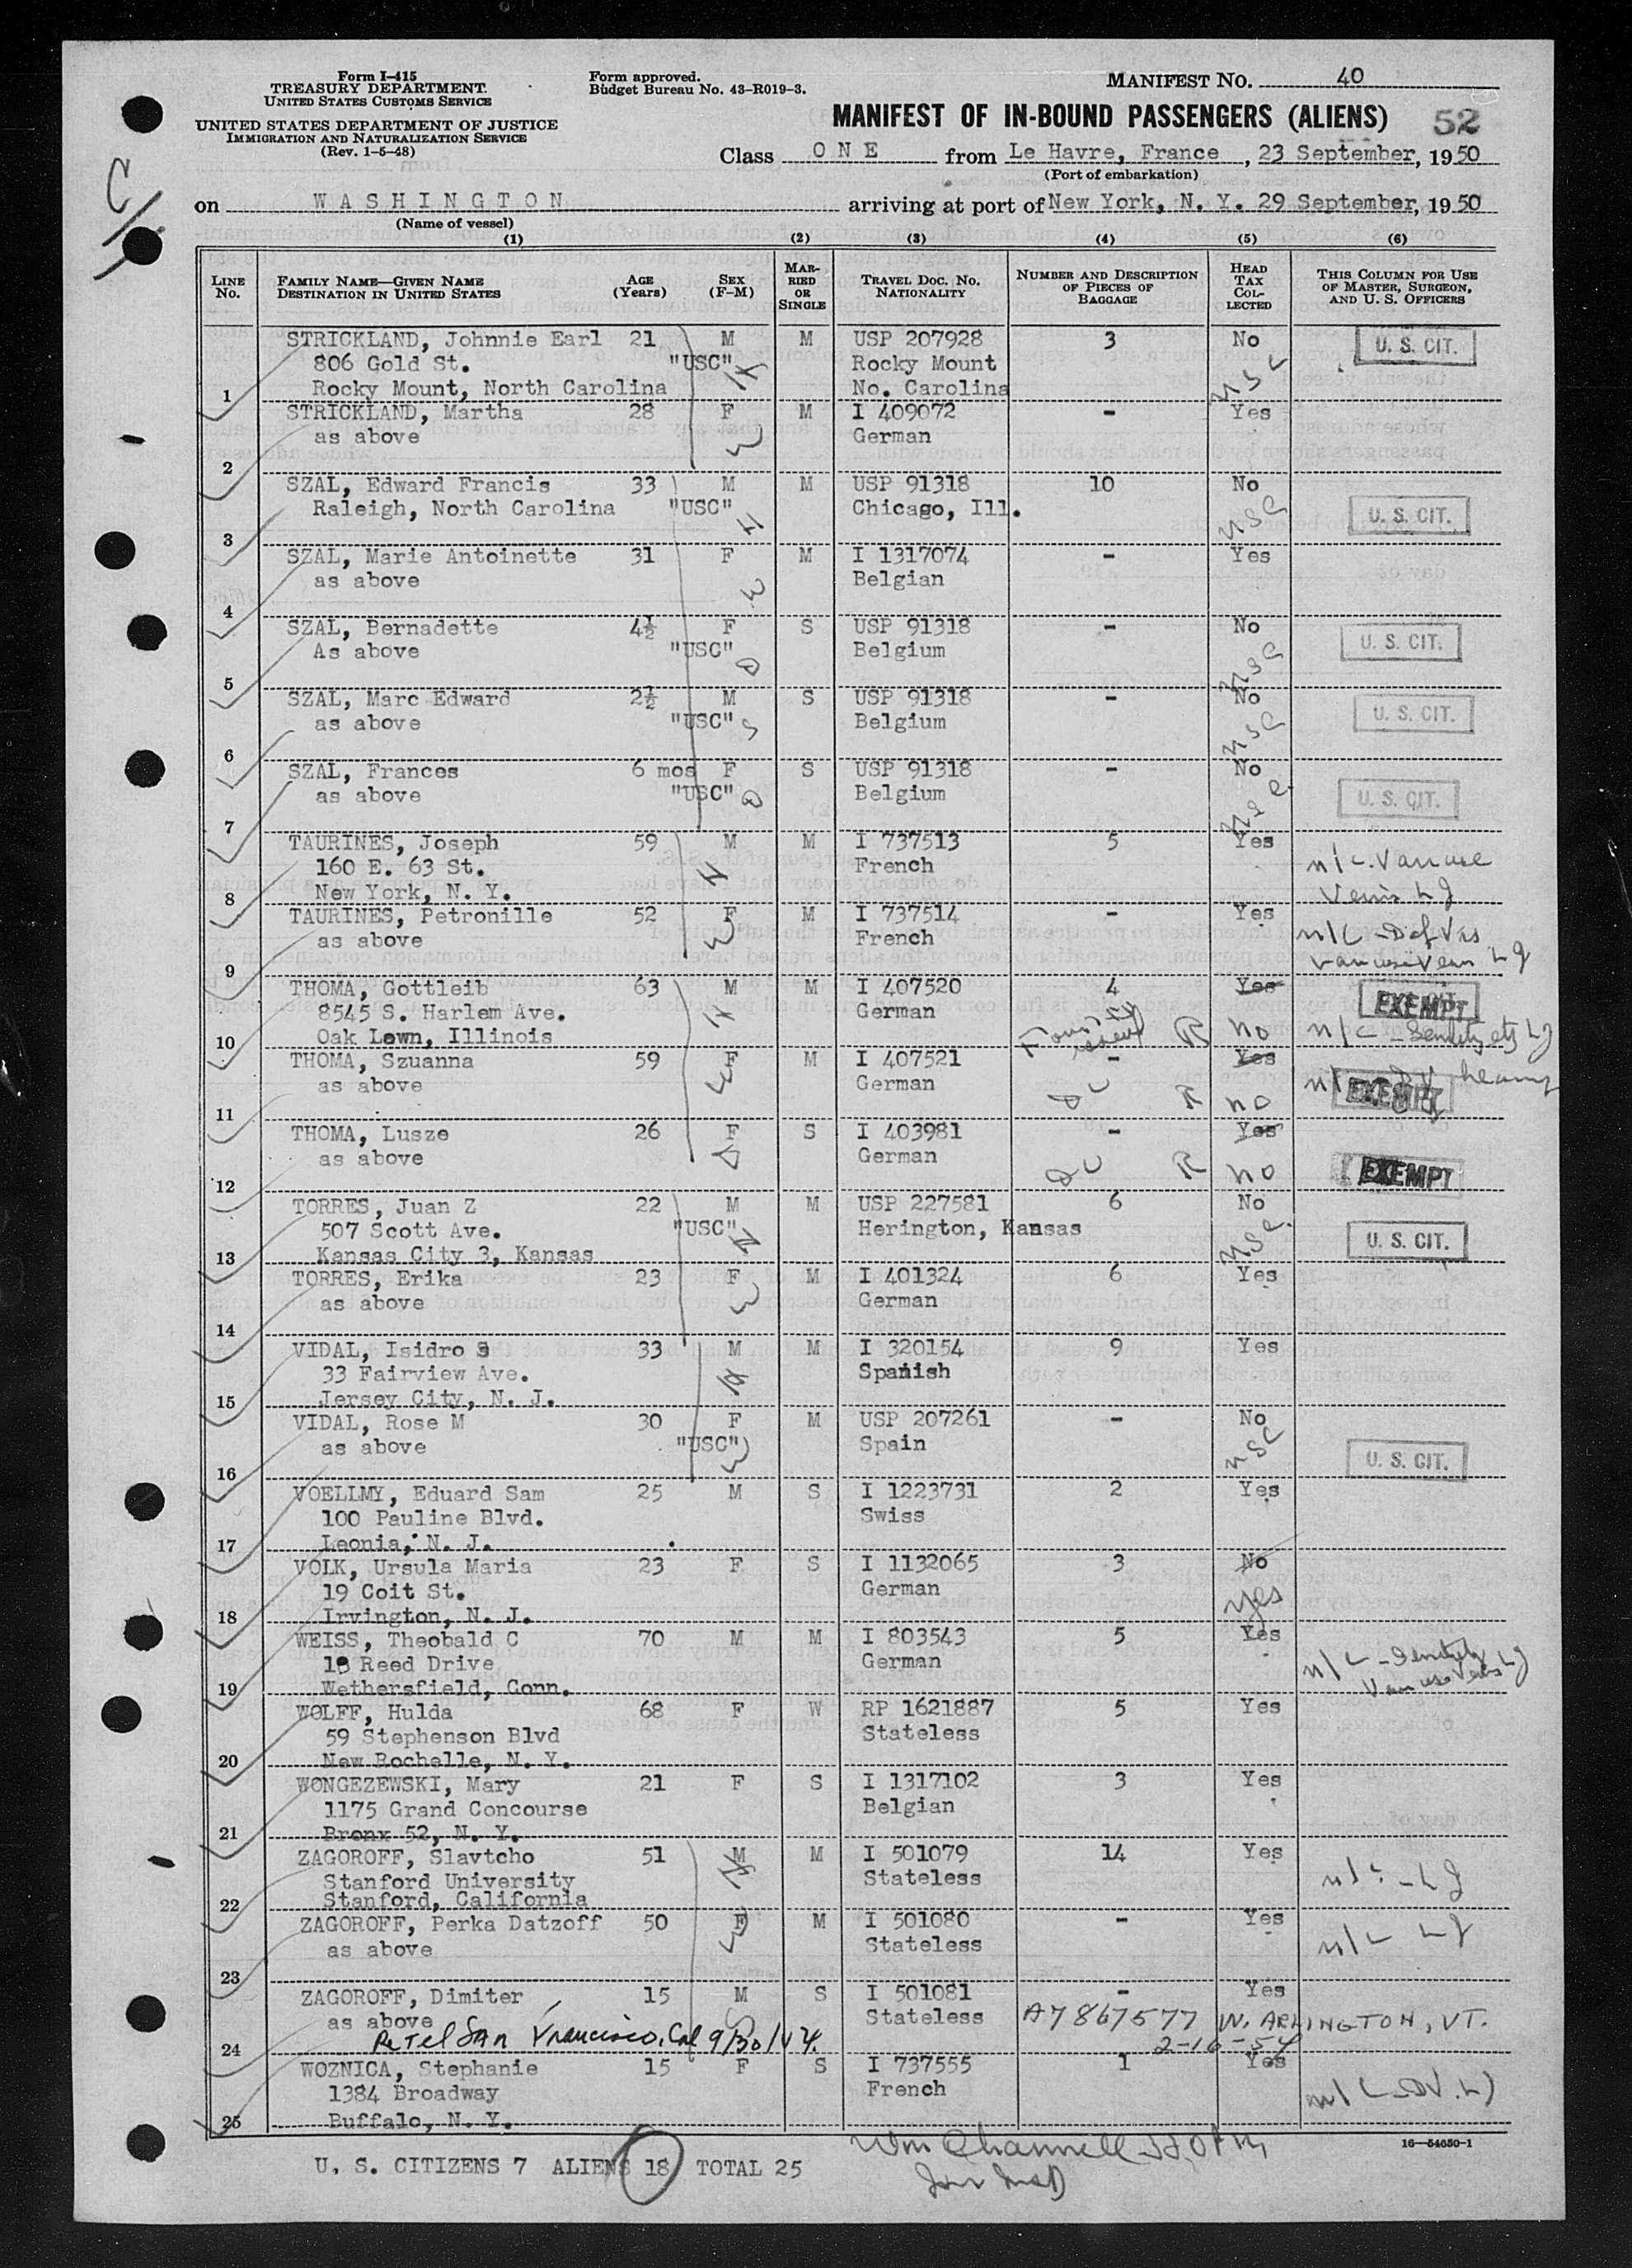 Form I-415
TREASURY DEPARTMENT
UNITED STATES CUSTOMS SERVICE
UNITED STATES DEPARTMENT OF JUSTICE
IMMIGRATION AND NATURALIZATION SERVICE
(Rev. 1-5-48)
Form approved.
Budget Bureau No. 43-R019-3.
MANIFEST NO. 40
MANIFEST OF IN-BOUND PASSENGERS (ALIENS) 52
Class ONE from Le Havre, France, 23 September, 1950
(Port of embarkation)
on WASHINGTON arriving at port of New York, N. Y. 29 September, 1950
(Name of vessel)
(1) (2) (3) (4) (5) (6)
LINE No. FAMILY NAME—GIVEN NAME DESTINATION IN UNITED STATES AGE (Years) SEX (F-M) MARRIED OR SINGLE TRAVEL DOC. NO. NATIONALITY NUMBER AND DESCRIPTION OF PIECES OF BAGGAGE HEAD TAX COLLECTED THIS COLUMN FOR USE OF MASTER, SURGEON, AND U. S. OFFICERS
STRICKLAND, Johnnie Earl 21 M M USP 207928 3 No U. S. CIT.
806 Gold St. "USC" Rocky Mount
1 Rocky Mount, North Carolina No. Carolina USC
STRICKLAND, Martha 28 F M I 409072 - Yes
as above German
2
SZAL, Edward Francis 33 M M USP 91318 10 No
Raleigh, North Carolina "USC" Chicago, Ill. USC U. S. CIT.
3
SZAL, Marie Antoinette 31 F M I 1317074 - Yes
as above Belgian
4
SZAL, Bernadette 4½ F S USP 91318 - No
As above "USC" Belgium USC U. S. CIT.
5
SZAL, Marc Edward 2½ M S USP 91318 - No
as above "USC" Belgium USC U. S. CIT.
6
SZAL, Frances 6 mos F S USP 91318 - No
as above "USC" Belgium USC U. S. CIT.
7
TAURINES, Joseph 59 M M I 737513 5 Yes
160 E. 63 St. French
8 New York, N. Y.
TAURINES, Petronille 52 F M I 737514 - Yes
as above French
9
THOMA, Gottleib 63 M M I 407520 4 Yes EXEMPT
8545 S. Harlem Ave. German
10 Oak Lawn, Illinois R No
THOMA, Szuanna 59 F M I 407521 - Yes
as above German EXEMPT
11 R no
THOMA, Lusze 26 F S I 403981 - Yes
as above German R no EXEMPT
12
TORRES, Juan Z 22 M M USP 227581 6 No
507 Scott Ave. "USC" Herington, Kansas USC U. S. CIT.
13 Kansas City 3, Kansas
TORRES, Erika 23 F M I 401324 6 Yes
as above German
14
VIDAL, Isidro S 33 M M I 320154 9 Yes
33 Fairview Ave. Spanish
15 Jersey City, N. J.
VIDAL, Rose M 30 F M USP 207261 - No
as above "USC" Spain USC U. S. CIT.
16
VOELLMY, Eduard Sam 25 M S I 1223731 2 Yes
100 Pauline Blvd. Swiss
17 Leonia, N. J.
VOLK, Ursula Maria 23 F S I 1132065 3 No
19 Coit St. German yes
18 Irvington, N. J.
WEISS, Theobald C 70 M M I 803543 5 Yes
18 Reed Drive German
19 Wethersfield, Conn.
WOLFF, Hulda 68 F W RP 1621887 5 Yes
59 Stephenson Blvd Stateless
20 New Rochelle, N. Y.
WONGEZEWSKI, Mary 21 F S I 1317102 3 Yes
1175 Grand Concourse Belgian
21 Bronx 52, N. Y.
ZAGOROFF, Slavtcho 51 M M I 501079 14 Yes
Stanford University Stateless
22 Stanford, California
ZAGOROFF, Perka Datzoff 50 F M I 501080 - Yes
as above Stateless
23
ZAGOROFF, Dimiter 15 M S I 501081 - Yes
as above Stateless A7867577 W. ARLINGTON, VT.
24 San Francisco, Cal 2-16-54
WOZNICA, Stephanie 15 F S I 737555 1 Yes
1384 Broadway French
25 Buffalo, N. Y.
16—54650-1
U. S. CITIZENS 7 ALIENS 18 TOTAL 25